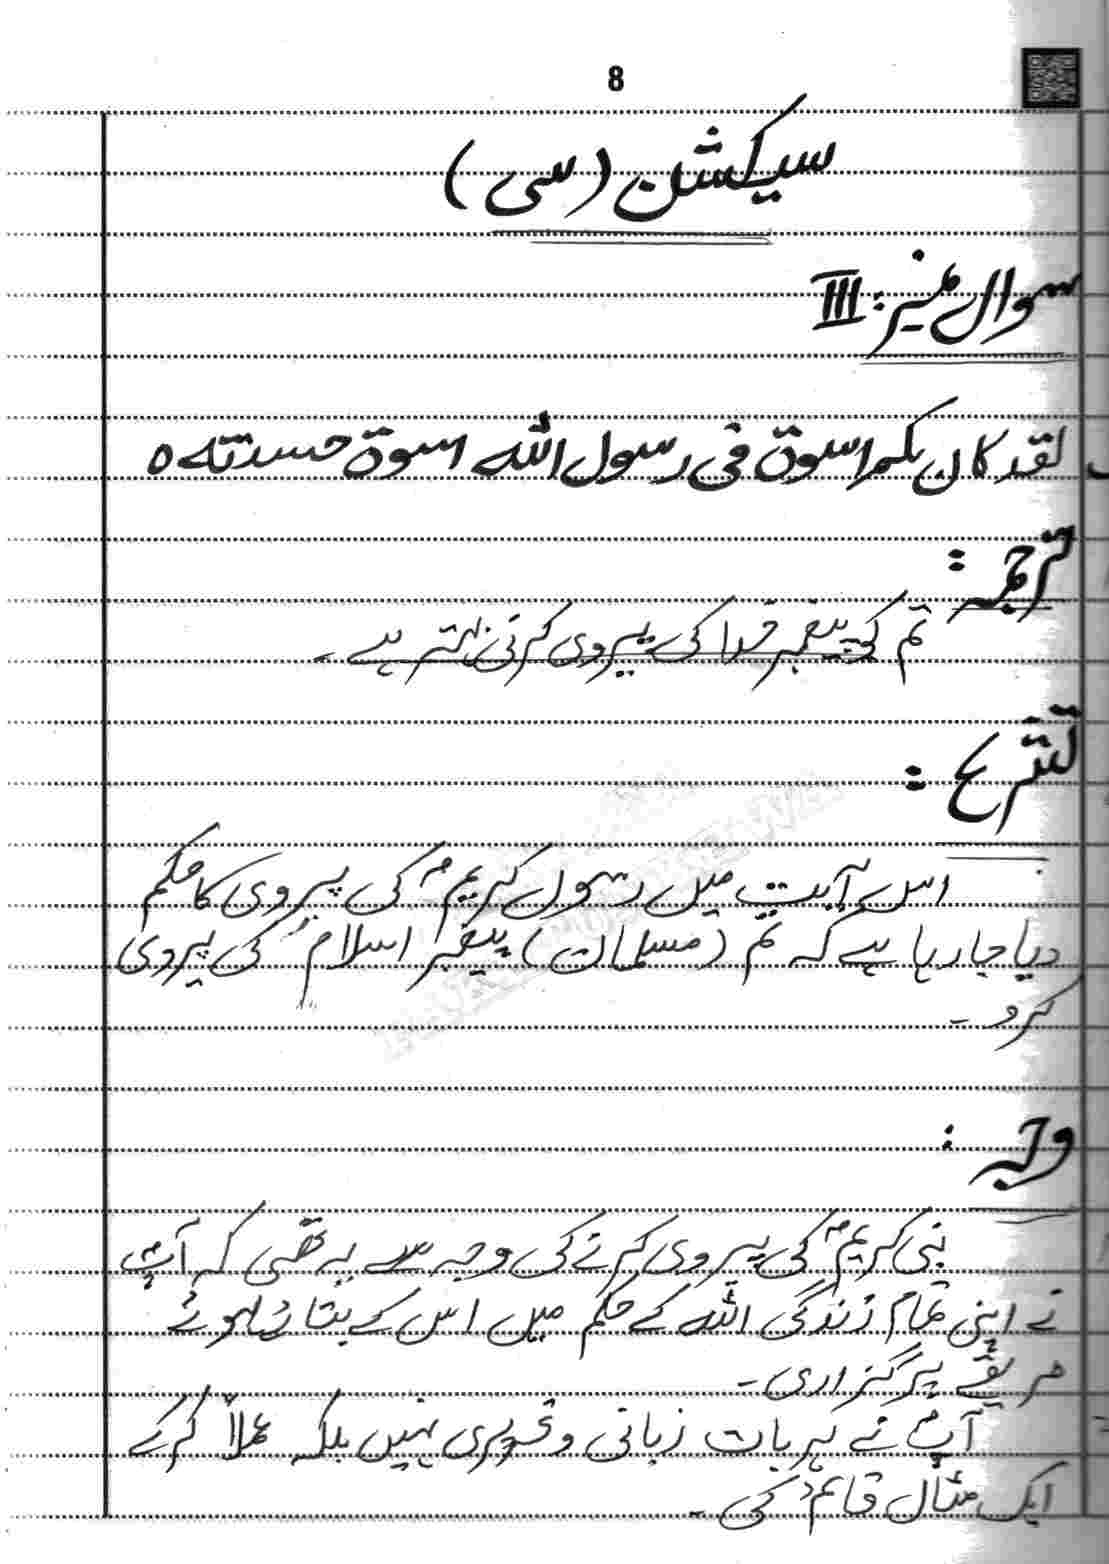 8
سیکشن (سی)
سوال نمبر: III
لقد کان لکم اسوۃ فی رسول اللہ اسوۃ حسنتہ o
ترجمہ :
تم کو پیغمبر خدا کی پیروی کرنی بہتر ہے۔
تشریح :
اس آیت میں رسول کریمؐ کی پیروی کا حکم
دیا جا رہا ہے کہ تم (مسلمان) پیغمبر اسلامؐ کی پیروی
کرو۔
وجہ :
نبی کریمؐ کی پیروی کرنے کی وجہ سے یہ تھی کہ آپؐ
نے اپنی تمام زندگی اللہ کے حکم میں اس کے بتائے ہوئے
طریقے پر گزاری۔
آپؐ نے ہر بات زبانی و تحریری نہیں بلکہ عملاً کرکے
ایک مثال قائم کی۔